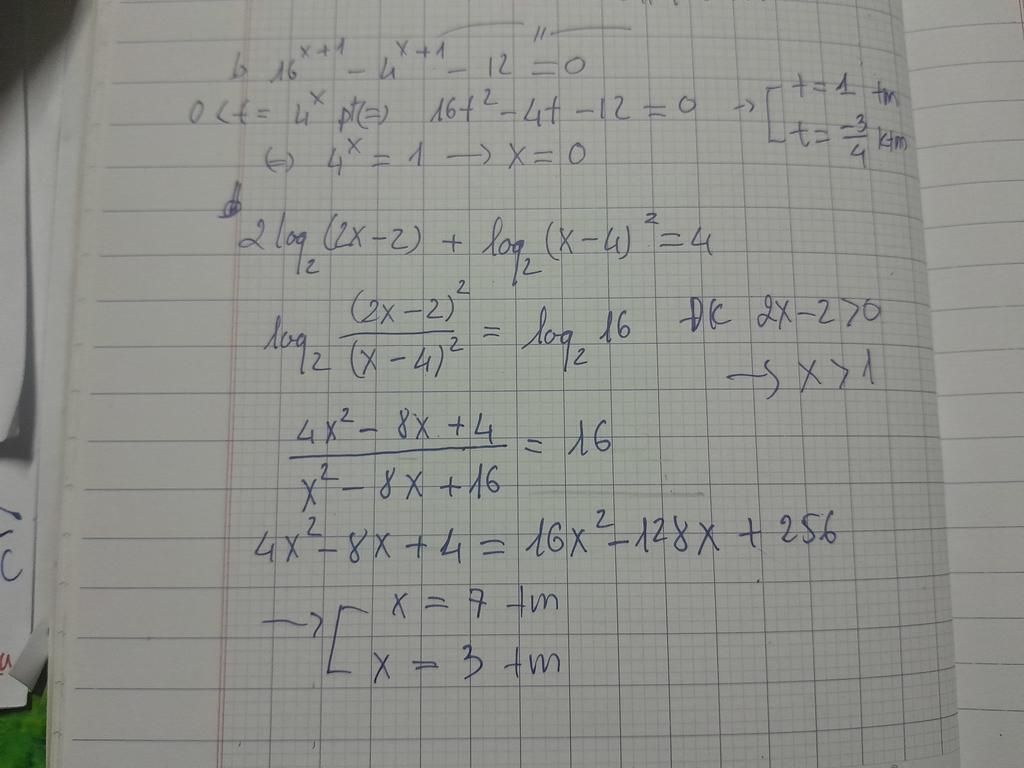 b 16^{x+1} - 4^{x+1} - 12 = 0
0 < t = 4^x pt(=) 16t^2 - 4t - 12 = 0 -> [ t = 1 tm
t = -3/4 ktm
(=) 4^x = 1 -> x = 0
2 log_2 (2x-2) + log_2 (x-4)^2 = 4
log_2 (2x-2)^2/(x-4)^2 = log_2 16 ĐK 2x-2>0
-> x > 1
(4x^2 - 8x + 4)/(x^2 - 8x + 16) = 16
4x^2 - 8x + 4 = 16x^2 - 128x + 256
-> [ x = 7 tm
x = 3 tm